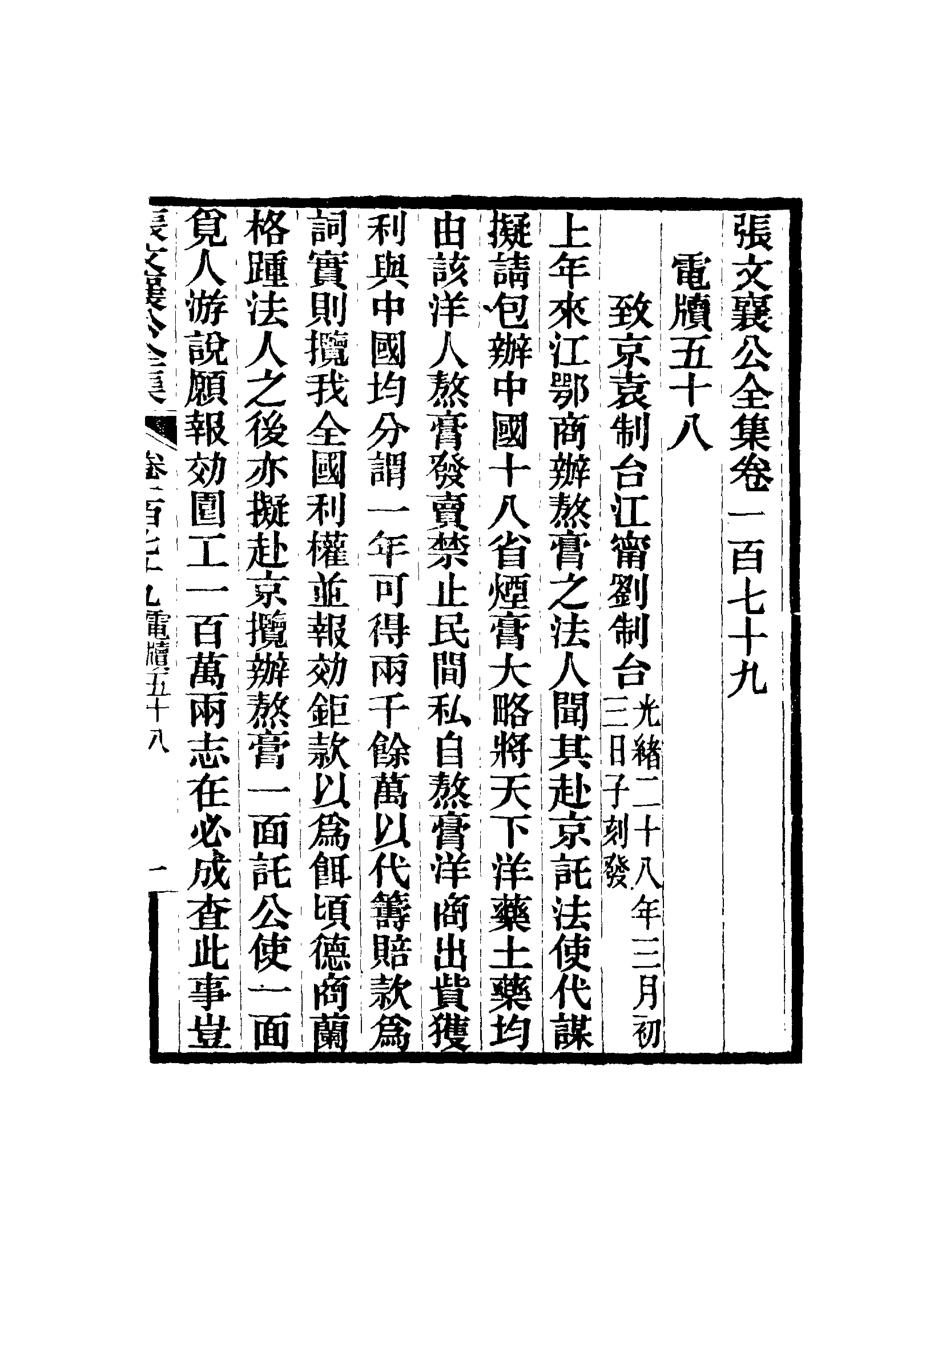 張文襄公全集卷一百七十九
電牘五十八
致京袁制台江甯劉制台光緒二十八年三月初三日子刻發
上年來江鄂商辦熬膏之法人聞其赴京託法使代謀
擬請包辦中國十八省煙膏大略將天下洋藥土藥均
由該洋人熬膏發賣禁止民間私自熬膏洋商出貲獲
利與中國均分謂一年可得兩千餘萬以代籌賠款爲
詞實則攬我全國利權並報効鉅款以爲餌頃德商蘭
格踵法人之後亦擬赴京攬辦熬膏一面託公使一面
覓人游說願報効圓工一百萬兩志在必成查此事豈
張文襄公全集 卷一百七十九 電牘五十八 一